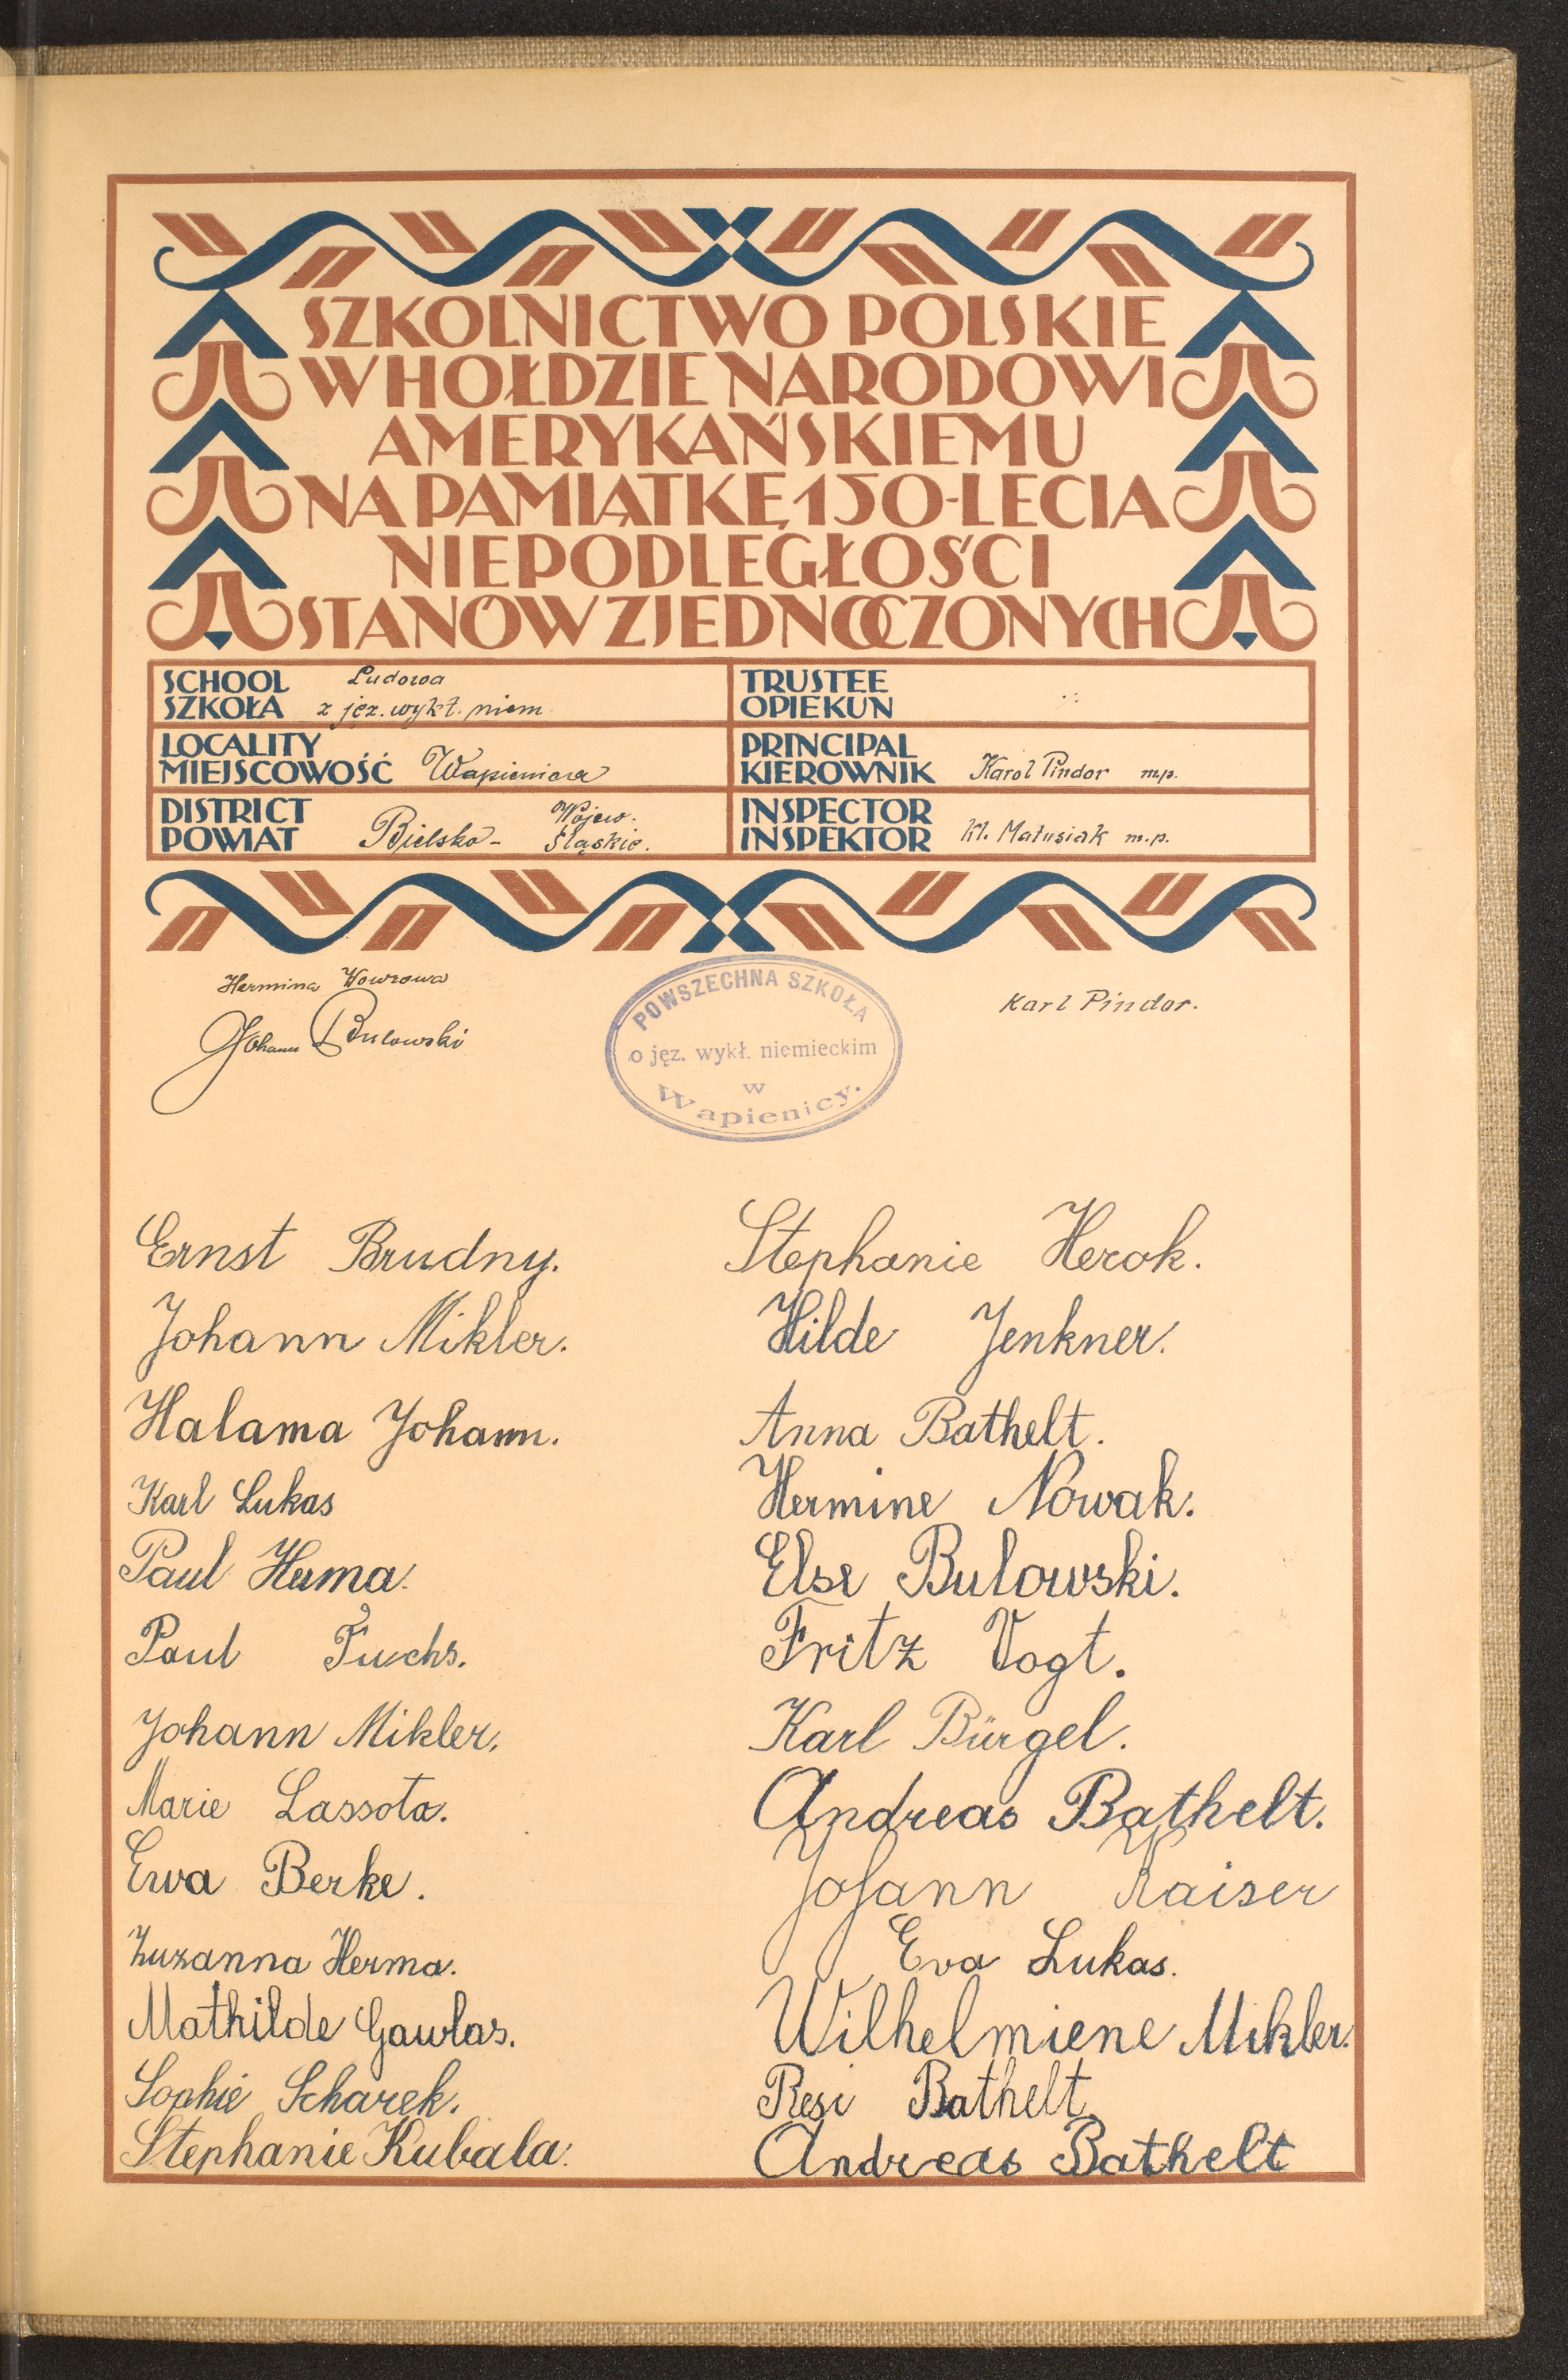 SZKOLNICTWO POLSKIE
W HOŁDZIE NARODOWI
AMERYKAŃSKIEMU
NA PAMIĄTKĘ 150-LECIA
NIEPODLEGŁOŚCI
STANÓW ZJEDNOCZONYCH
SCHOOL
SZKOŁA
Ludowa
z jęz. wykł. niem
TRUSTEE
OPIEKUN
LOCALITY
MIEJSCOWOŚĆ
Wapienica
PRINCIPAL
KIEROWNIK
Karol Pindor mp.
DISTRICT
POWIAT
Bielsko-
Wojew.
Śląskie.
INSPECTOR
INSPEKTOR
Kl. Matusiak m.p.
Hermina Wowrowa
Johann Bulowski
POWSZECHNA SZKOŁA
o jęz. wykł. niemieckim
w
Wapienicy.
Karl Pindor.
Ernst Brudny.
Johann Mikler.
Halama Johann.
Karl Lukas
Paul Herma.
Paul Fuchs.
Johann Mikler.
Marie Lassota.
Ewa Berke.
Zuzanna Herma.
Mathilde Gawlas.
Sophie Scharek.
Stephanie Kubala.
Stephanie Herok.
Hilde Jenkner.
Anna Bathelt.
Hermine Nowak.
Else Bulowski.
Fritz Vogt.
Karl Bürgel.
Andreas Bathelt.
Johann Kaiser
Eva Lukas.
Wilhelmiene Mikler.
Resi Bathelt.
Andreas Bathelt